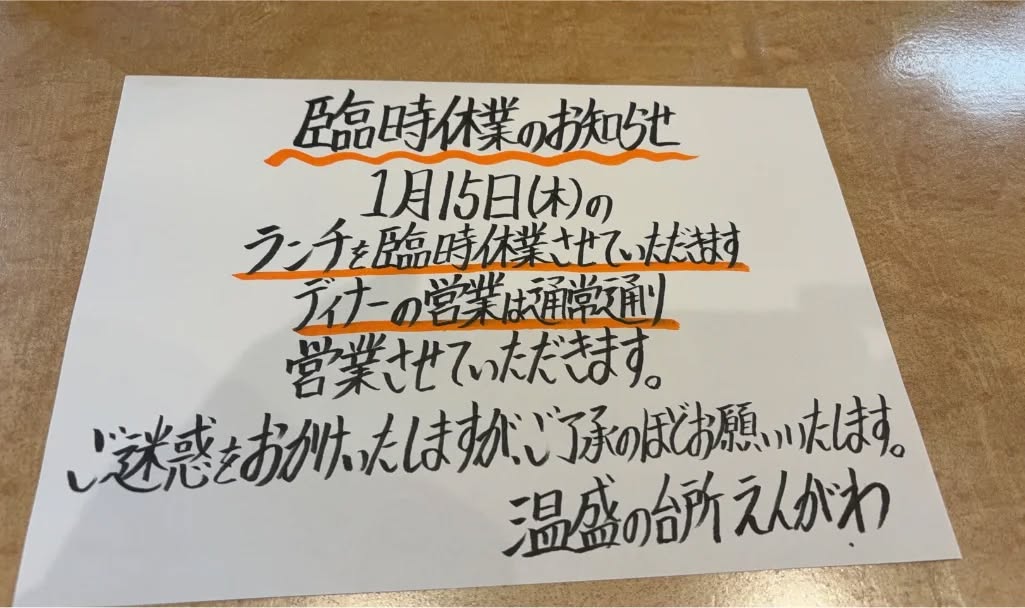 臨時休業のお知らせ
1月15日(木)の
ランチを臨時休業させていただきます
ディナーの営業は通常通り
営業させていただきます。
ご迷惑をおかけいたしますが、ご了承のほどお願いいたします。
温盛の台所えんがわ